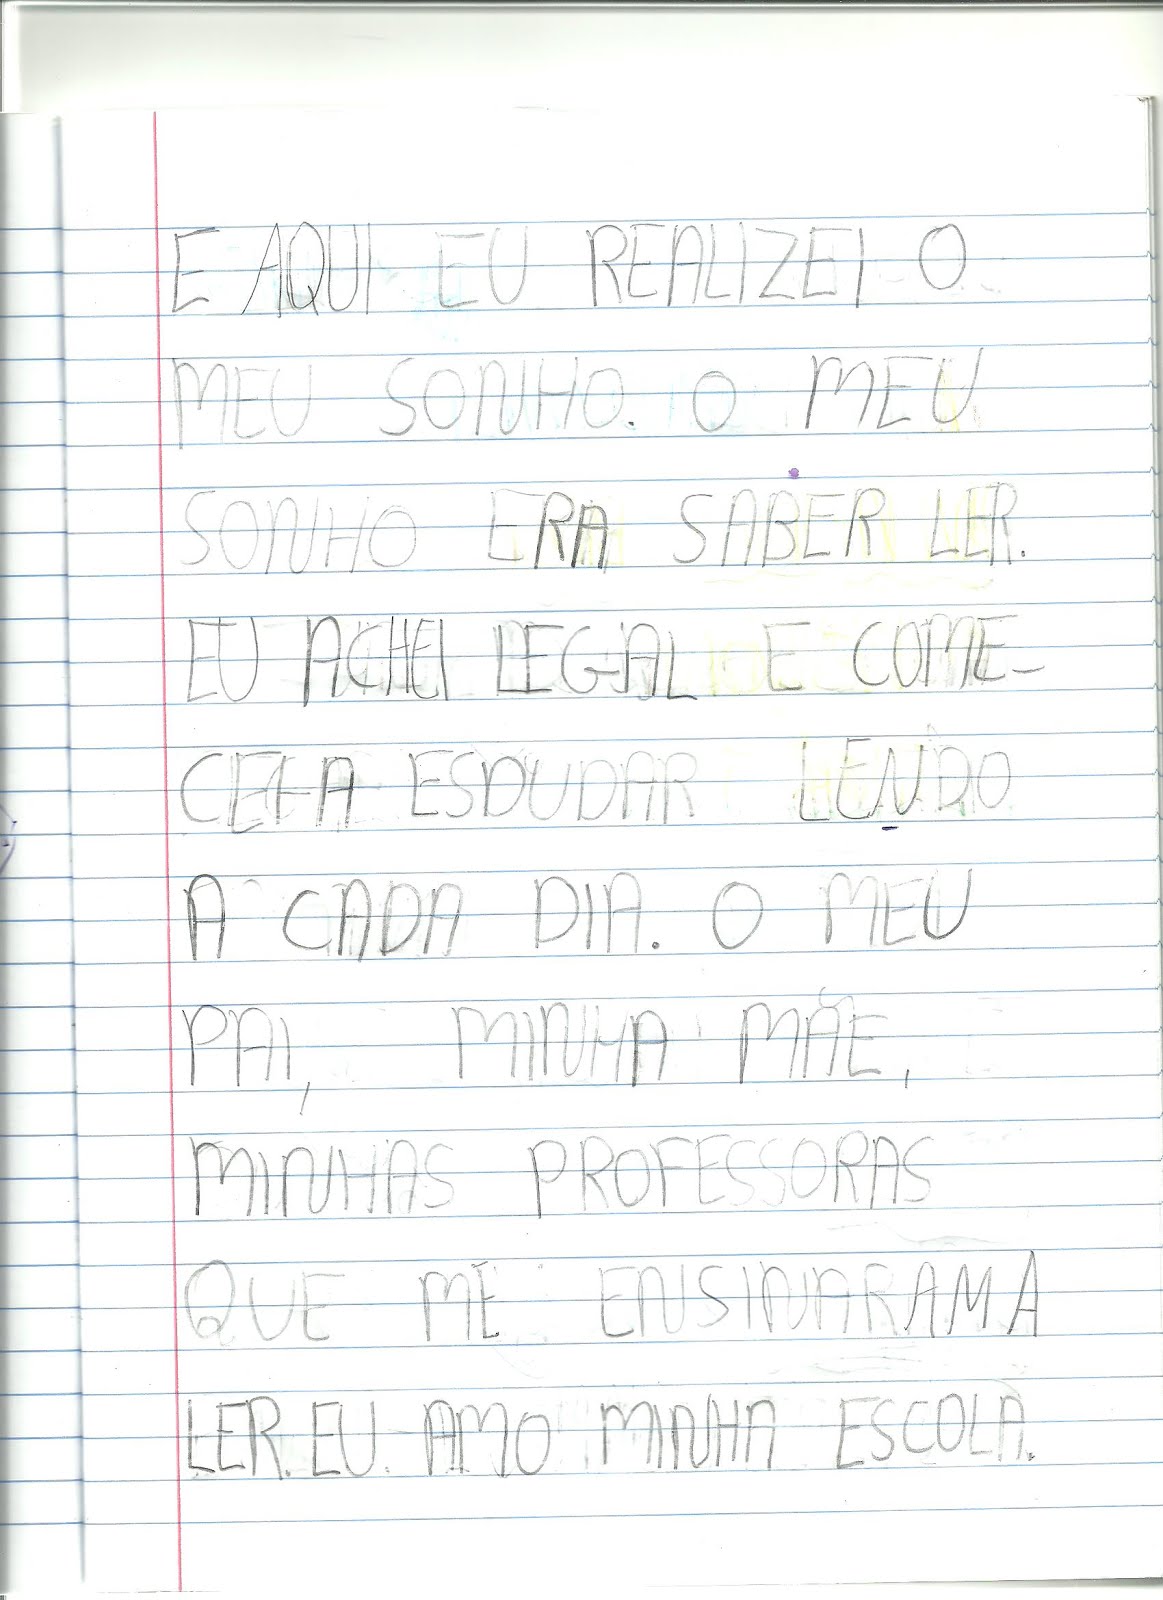 E AQUI EU REALIZEI O
MEU SONHO. O MEU
SONHO ERA SABER LER.
EU ACHEI LEGAL E COME-
CEI A ESDUDAR LENDO
A CADA DIA. O MEU
PAI, MINHA MÃE,
MINHAS PROFESSORAS
QUE ME ENSINARAM A
LER. EU AMO MINHA ESCOLA.